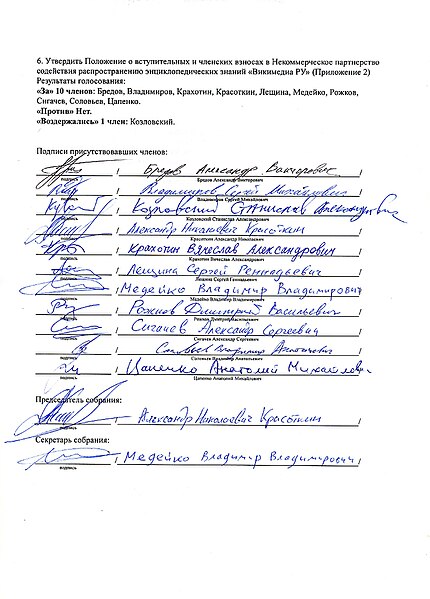 6. Утвердить Положение о вступительных и членских взносах в Некоммерческое партнерство
содействия распространению энциклопедических знаний «Викимедиа РУ» (Приложение 2)
Результаты голосования:
«За» 10 членов: Бредов, Владимиров, Крахотин, Красоткин, Лещина, Медейко, Рожков,
Сигачев, Соловьев, Цапенко.
«Против» Нет.
«Воздержались» 1 член: Козловский.
Подписи присутствовавших членов:
/ Бредов Александр Викторович /
подпись Бредов Александр Викторович
/ Владимиров Сергей Михайлович /
подпись Владимиров Сергей Михайлович
/ Козловский Станислав Александрович
подпись Козловский Станислав Александрович
/ Александр Николаевич Красоткин /
подпись Красоткин Александр Николаевич
/ Крахотин Вячеслав Александрович /
подпись Крахотин Вячеслав Александрович
/ Лещина Сергей Геннадьевич /
подпись Лещина Сергей Геннадьевич
/ Медейко Владимир Владимирович /
подпись Медейко Владимир Владимирович
/ Рожков Дмитрий Васильевич /
подпись Рожков Дмитрий Васильевич
/ Сигачев Александр Сергеевич /
подпись Сигачев Александр Сергеевич
/ Соловьев Владимир Анатольевич /
подпись Соловьев Владимир Анатольевич
/ Цапенко Анатолий Михайлович
подпись Цапенко Анатолий Михайлович
Председатель собрания:
/ Александр Николаевич Красоткин /
подпись
Секретарь собрания:
/ Медейко Владимир Владимирович /
подпись